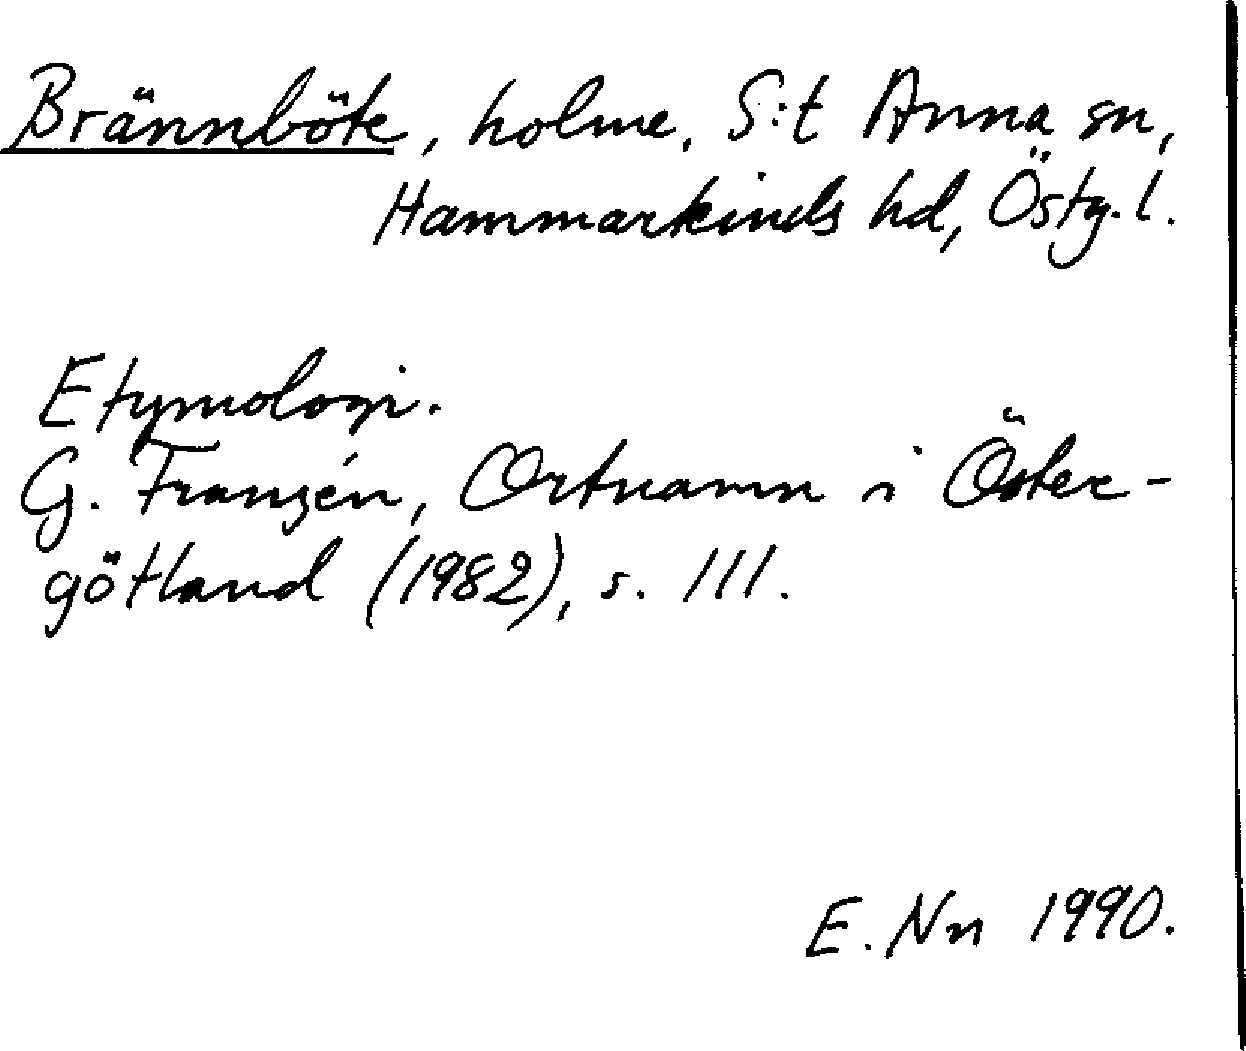 Brännböte, holme, S:t Anna sn,
Hammarkinds hd, Östg.l.
Etymologi.
G. Franzén, Ortnamn i Öster-
götland (1982), s. 111.
E. Nn 1990.